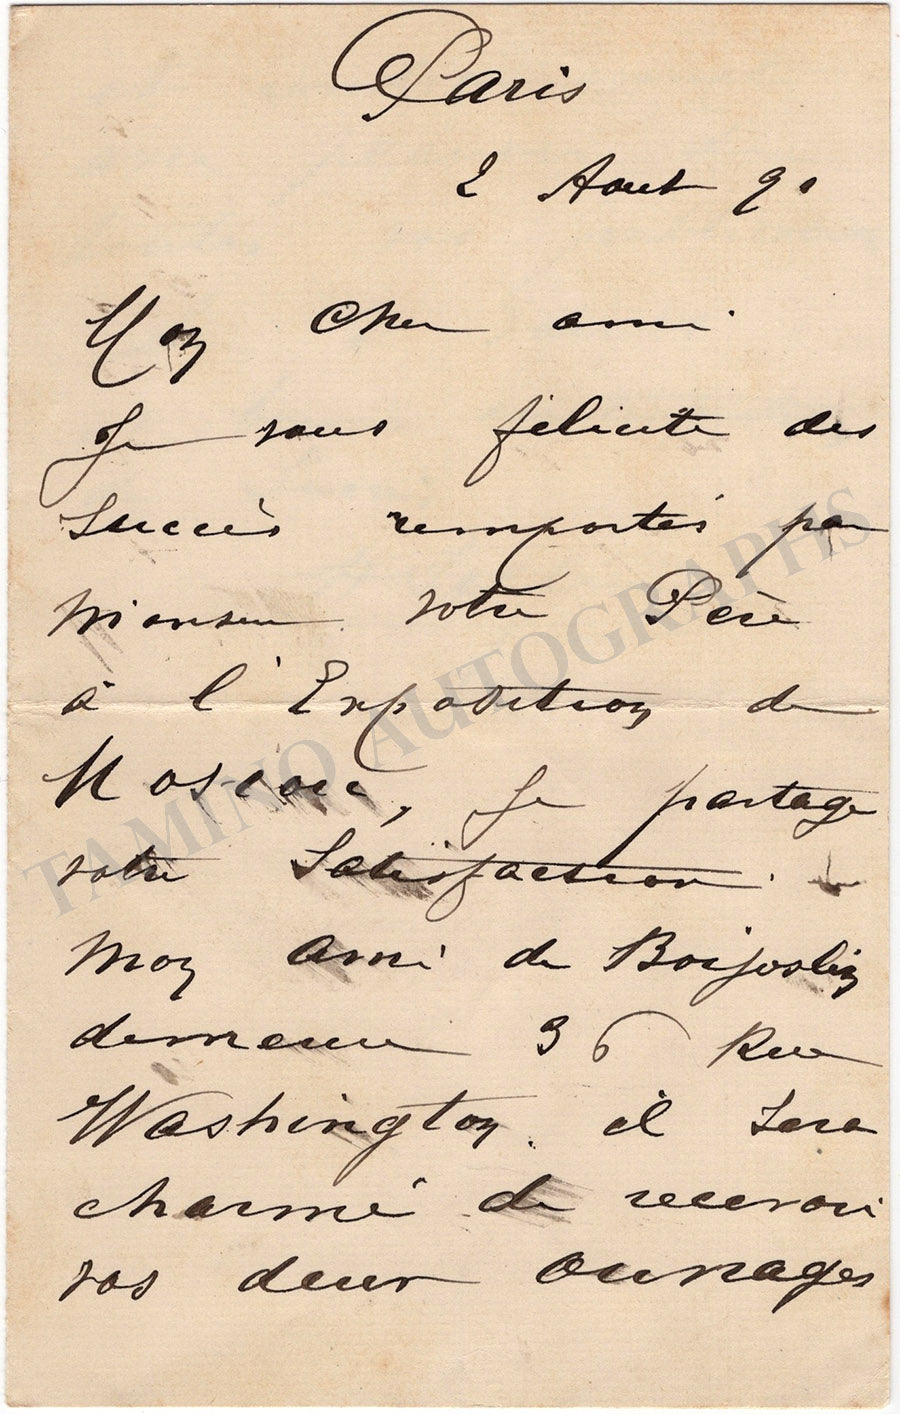 Paris
2 Aout 91
Mon Cher ami
Je vous félicite des
Succès remportés par
Monsieur votre Père
à l'Exposition de
Moscou, Je partage
votre Satisfaction.
Mon ami de Boisjoslin
demeure 36 Rue
Washington. il Sera
charmé de recevoir
vos deux ouvrages
TAMINO AUTOGRAPHS